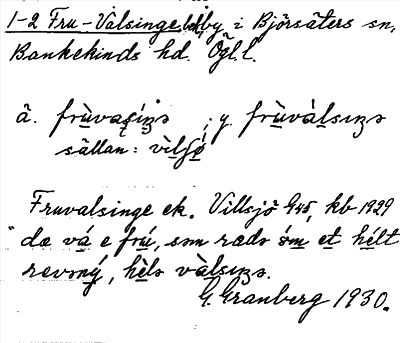 1-2 Fru-Valsinge, by i Björsäters sn,
Bankekinds hd. Ögl.l.
ä. frùvaśíņs ; y. frùvàlsıņs
sällan: vìlʃö́
Fruvalsinge ek. Villsjö G45, kb 1929
dæ vá e frú, som rædɘ óm et hélt
revɘný, hèlɘ vàlsıņɘ.
G. Granberg 1930.